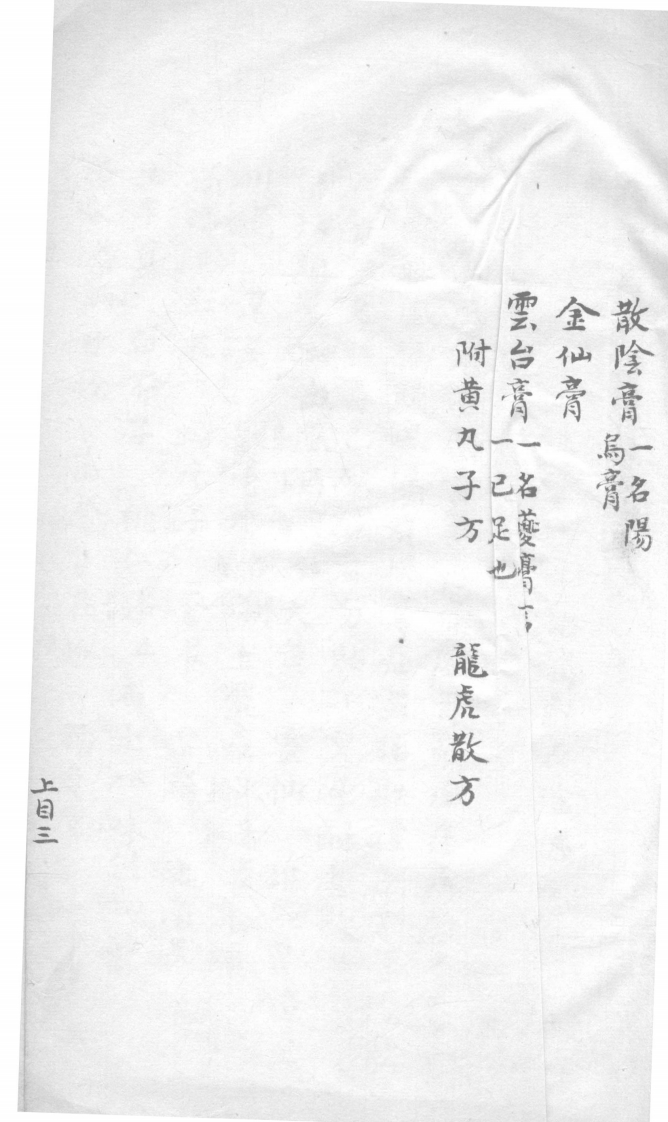 散陰膏一名陽烏膏
金仙膏
雲台膏一名夔膏言一已足也
附黄丸子方　龍虎散方
上目三